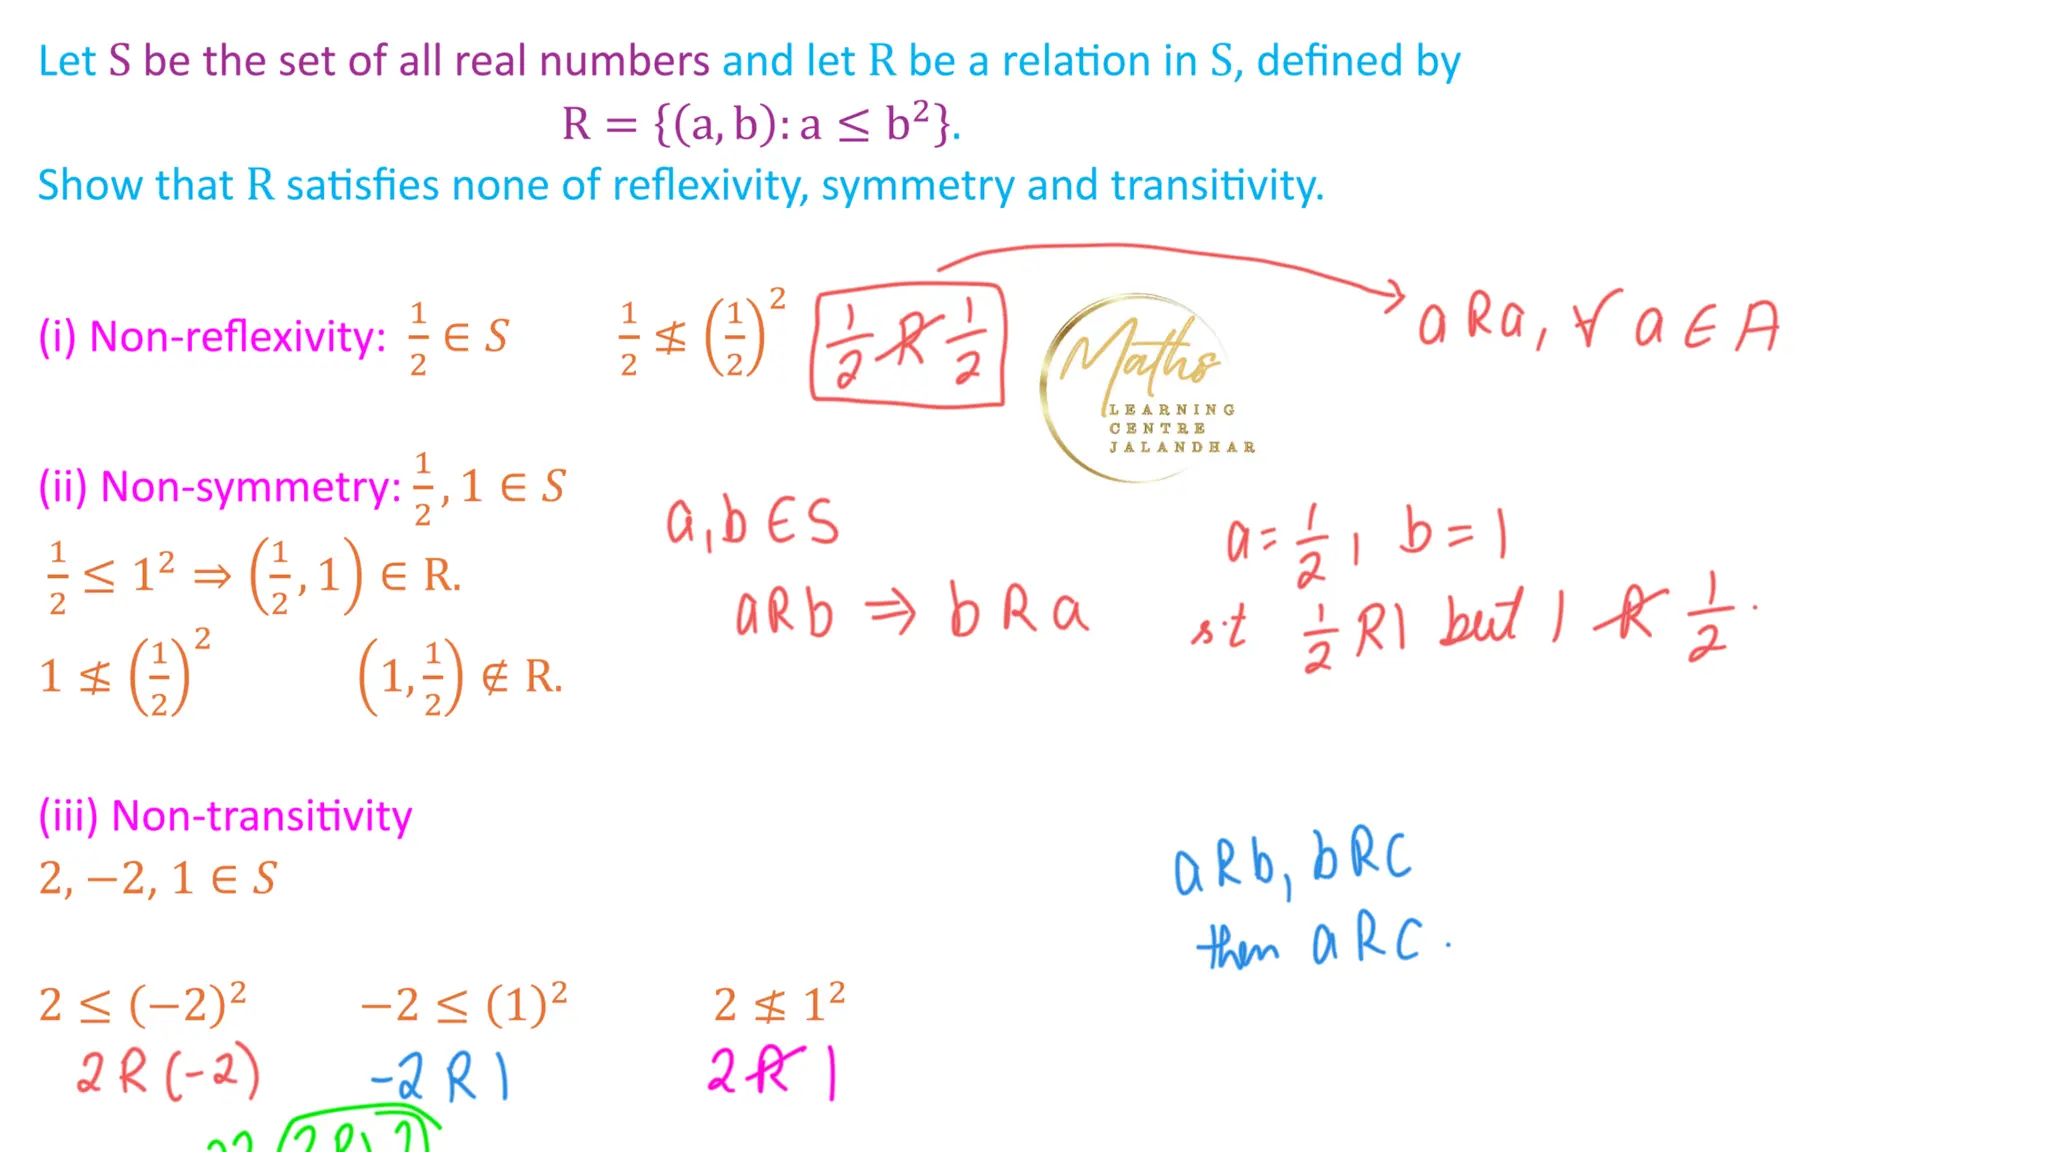 Let S be the set of all real numbers and let R be a relation in S, defined by
R = {(a, b): a ≤ b²}.
Show that R satisfies none of reflexivity, symmetry and transitivity.
(i) Non-reflexivity: 1/2 ∈ S 1/2 ≰ (1/2)² 1/2 R̸ 1/2 → a R a, ∀ a ∈ A
Maths
LEARNING
CENTRE
JALANDHAR
(ii) Non-symmetry: 1/2, 1 ∈ S
a, b ∈ S a = 1/2, b = 1
1/2 ≤ 1² ⇒ (1/2, 1) ∈ R.
aRb ⇒ b R a s.t 1/2 R 1 but 1 R̸ 1/2.
1 ≰ (1/2)² (1, 1/2) ∉ R.
(iii) Non-transitivity
2, −2, 1 ∈ S
aRb, bRC
then aRC.
2 ≤ (−2)² −2 ≤ (1)² 2 ≰ 1²
2 R (-2) -2 R 1 2 R̸ 1